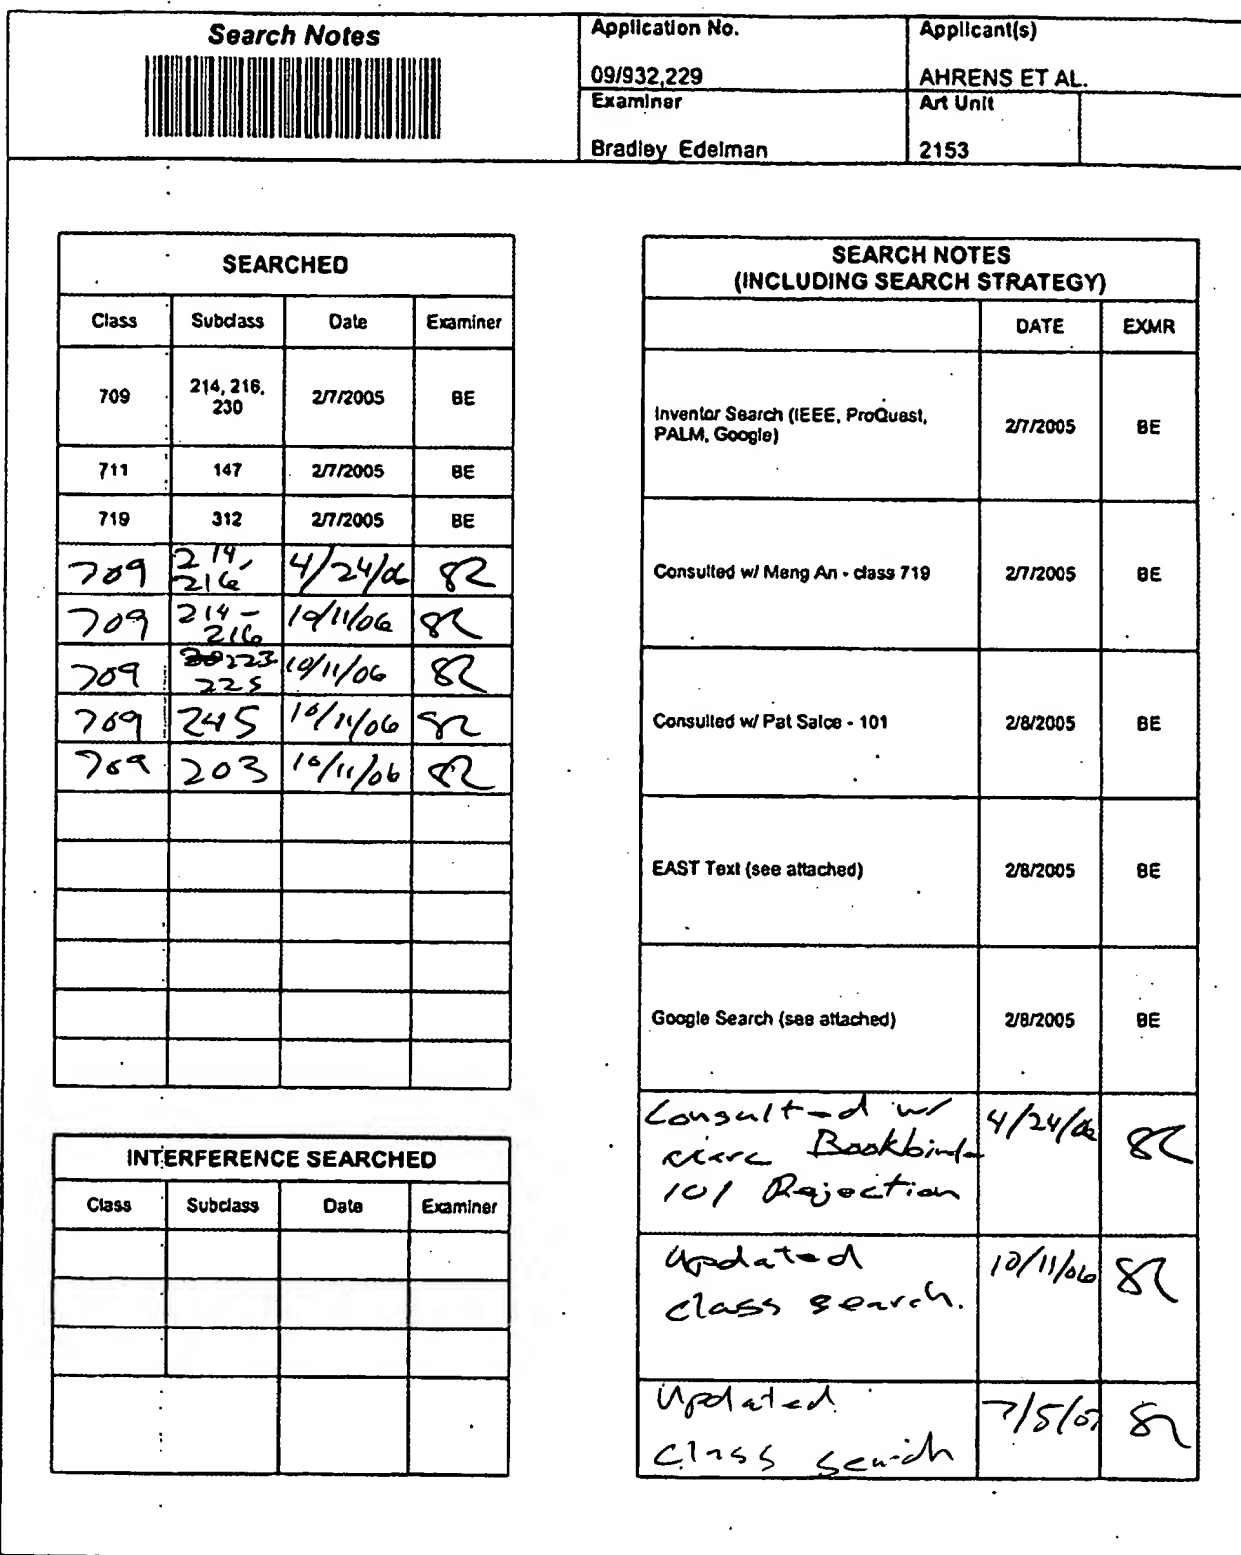 Search Notes
Application No.
09/932,229
Applicant(s)
AHRENS ET AL.
Examiner
Bradley Edelman
Art Unit
2153
SEARCHED
Class Subclass Date Examiner
709 214, 216, 230 2/7/2005 BE
711 147 2/7/2005 BE
719 312 2/7/2005 BE
709 214, 216 4/24/06
709 214 - 216 10/11/06
709 223 225 10/11/06
709 245 10/11/06
709 203 10/11/06
INTERFERENCE SEARCHED
Class Subclass Date Examiner
SEARCH NOTES
(INCLUDING SEARCH STRATEGY)
DATE EXMR
Inventor Search (IEEE, ProQuest,
PALM, Google) 2/7/2005 BE
Consulted w/ Meng An - class 719 2/7/2005 BE
Consulted w/ Pat Salce - 101 2/8/2005 BE
EAST Text (see attached) 2/8/2005 BE
Google Search (see attached) 2/8/2005 BE
Consulted w/ 4/24/06
Bookbinder
101 Rejection
Updated 10/11/06
class search.
Updated 7/5/07
class search